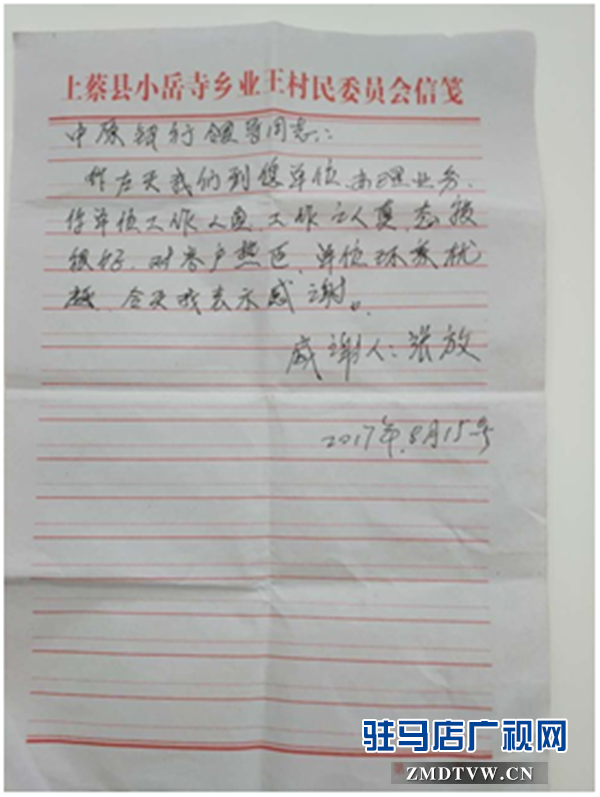 上蔡县小岳寺乡业王村民委员会信笺
中原银行领导同志：
昨天我们到您单位办理业务，
你单位工作人员，工作认真，态度
很好，对客户热区，单位环
越，今天我表示感谢。
感谢人：张放
2017年8月15号
驻马店广视网
第
ZMDTVW.CN